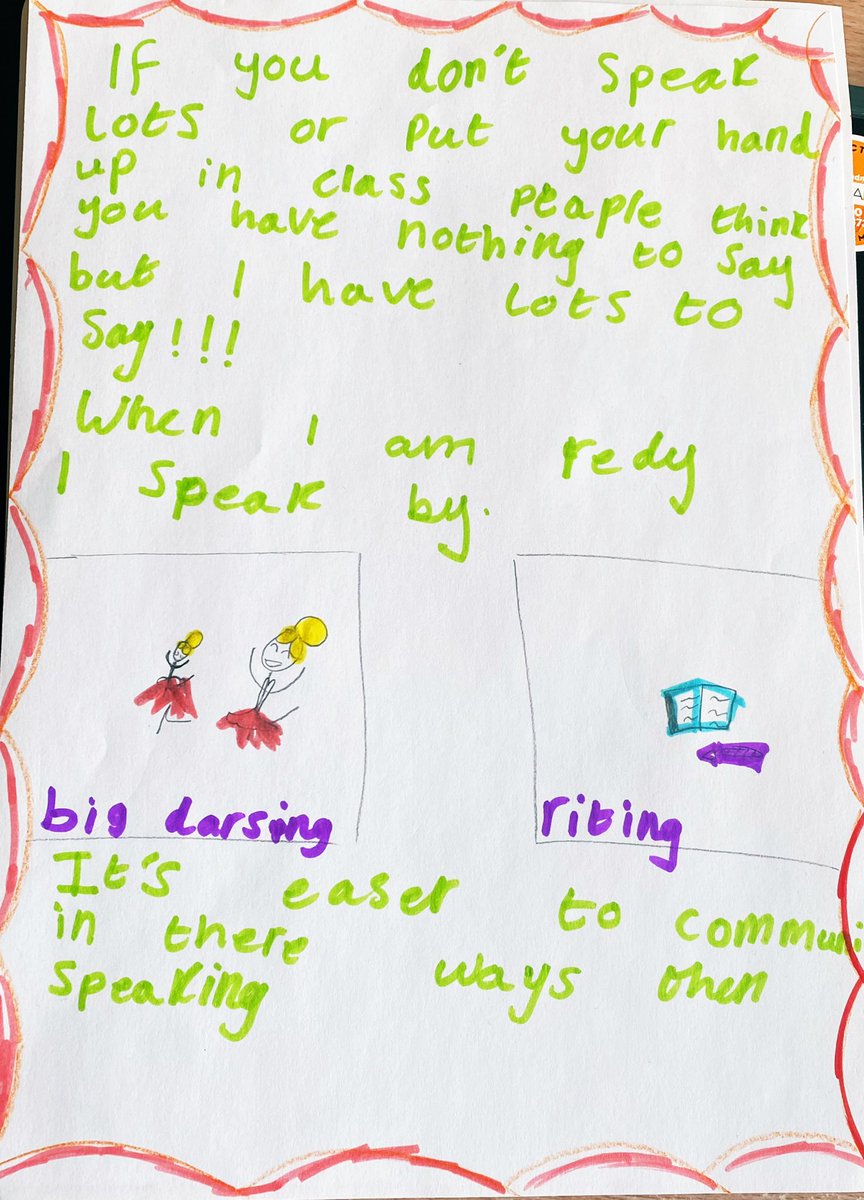 If you don't speak
lots or put your hand
up in class peaple think
you have nothing to say
but I have lots to
say!!!
When I am redy
I speak by.
big darsing
riting
It's easer to communi
in there ways then
speaking